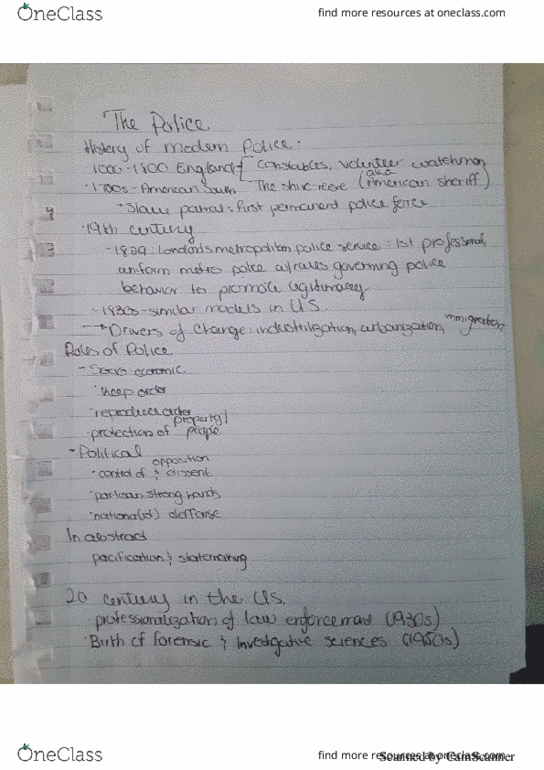 OneClass
find more resources at oneclass.com
The Police
History of modern Police:
1000-1800 England { Constables, volunteer watchman
· 1700s - American South - The shire reeve (aka American sheriff)
- Slave patrol = first permanent police force
· 19th century
- 1829: London's metropolitan police service: 1st professional,
uniform metro police w/rules governing police
behavior to promote legitimacy
- 1830s - similar models in U.S.
→ Drivers of change: industrilization, urbanization, immigration
Roles of Police
- Socio economic
· keep order
· reproduce order
· protection of property/people
- Political
· control of opposition & dissent
· partisan strong hands
· national(ist) defense
In abstract
pacification & statemaking
20 century in the U.S.
· professionalization of law enforcement (1930s)
· Birth of forensic & investigative sciences (1950s)
OneClass
find more resources at oneclass.com
Scanned by CamScanner